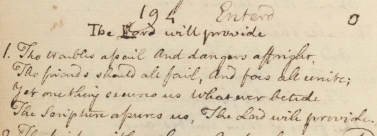 194 Enterd 0
The Lord will provide
1. Tho troubles assail And dangers affright,
Tho friends should all fail, And foes all unite;
Yet one thing secures us whatever betide
The Scripture assures us, The Lord will provide.